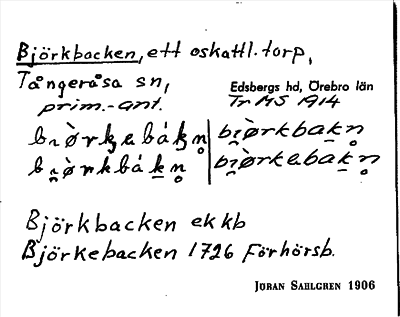 Björkbacken, ett oskattl. torp,
Tångeråsa sn, Edsbergs hd, Örebro län
prim.-ant. Tr MS 1914
Björkbacken ekkb
Björkebacken 1726 Förhörsb.
JÖRAN SAHLGREN 1906